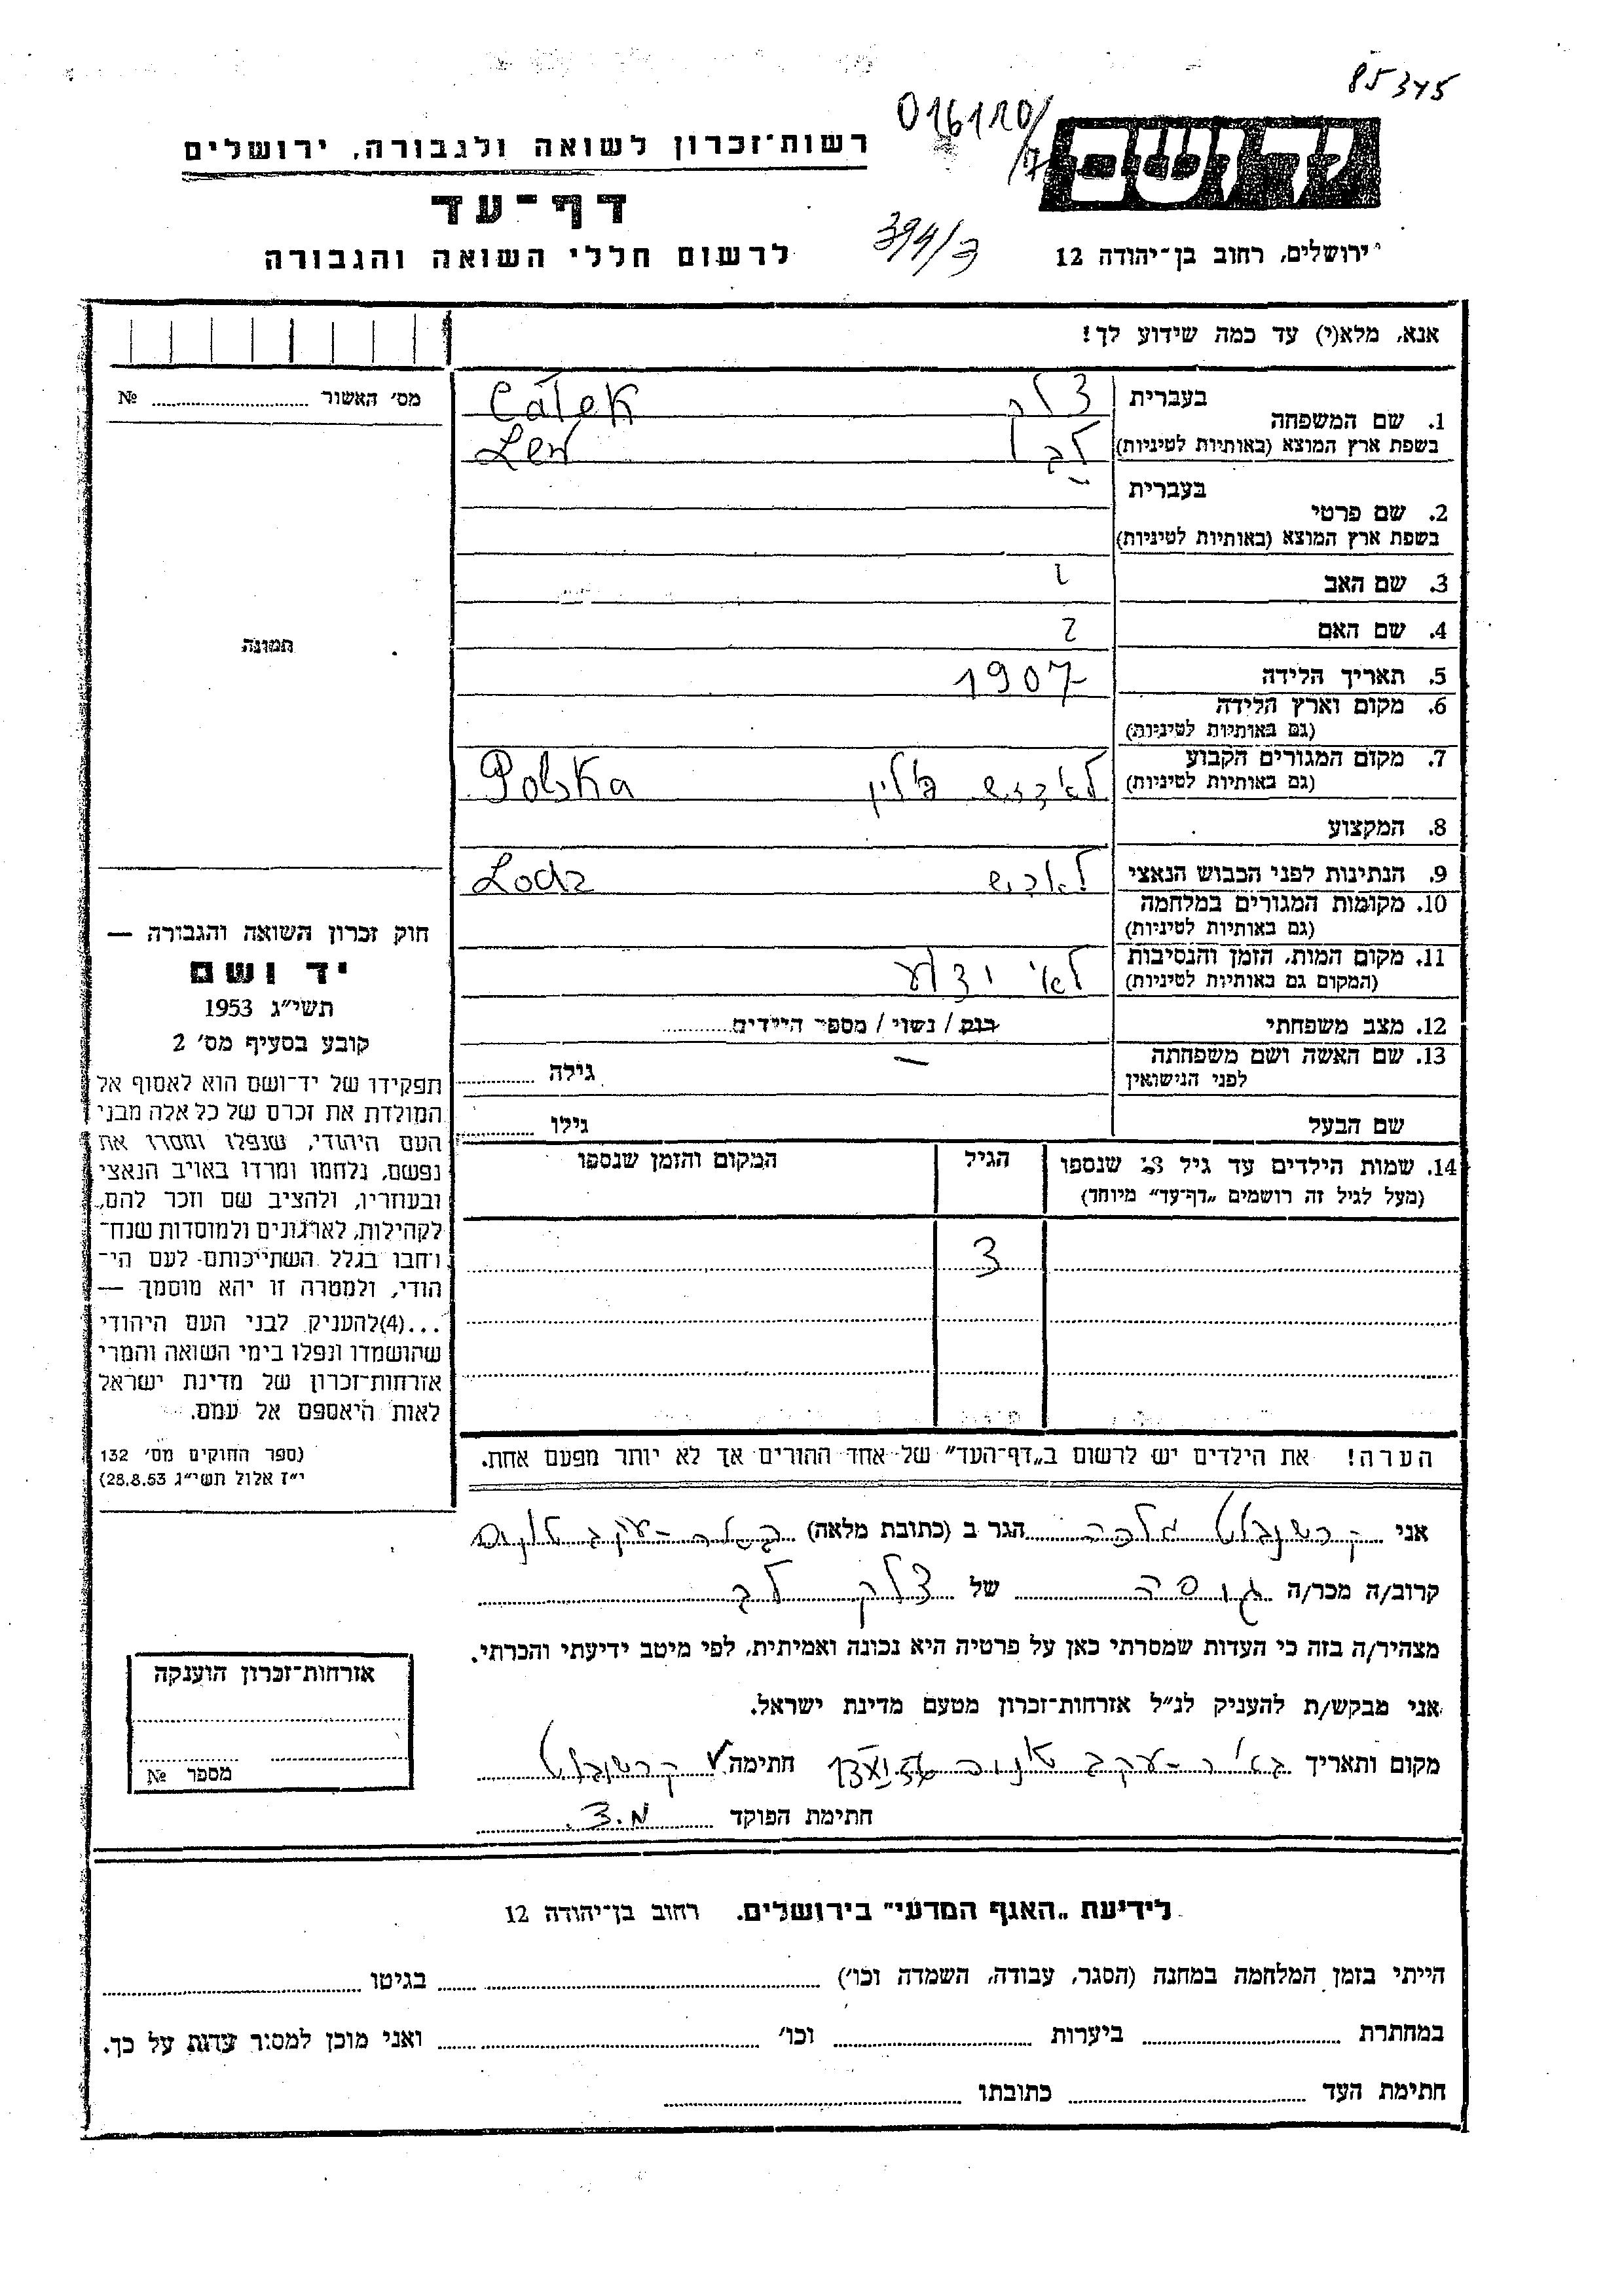 85345
016110/
17
רשות־זכרון לשואה ולגבורה, ירושלים
דף־עד
394/3
ירושלים, רחוב בן־יהודה 12
לרשום חללי השואה והגבורה
אנא, מלא(י) עד כמה שידוע לך!
מס׳ האשור № ..........
1. שם המשפחה
בעברית צלק Calek
בשפת ארץ המוצא (באותיות לטיניות) לב Lew
2. שם פרטי
בעברית —
בשפת ארץ המוצא (באותיות לטיניות)
3. שם האב
4. שם האם ?
תמונה
5. תאריך הלידה 1907
6. מקום וארץ הלידה
(גם באותיות לטיניות)
7. מקום המגורים הקבוע
(גם באותיות לטיניות) פולין Polska
8. המקצוע
9. הנתינות לפני הכבוש הנאצי Lodz
10. מקומות המגורים במלחמה
(גם באותיות לטיניות)
11. מקום המות, הזמן והנסיבות
(המקום גם באותיות לטיניות) לא ידוע
12. מצב משפחתי רוק / נשוי / מספר הילדים
13. שם האשה ושם משפחתה
לפני הנישואין — גילה
שם הבעל גילו
14. שמות הילדים עד גיל 18 שנספו הגיל המקום והזמן שנספו
(מעל לגיל זה רושמים „דף־עד״ מיוחד)
3
הערה! את הילדים יש לרשום ב„דף־העד״ של אחד ההורים אך לא יותר מפעם אחת.
חוק זכרון השואה והגבורה —
יד ושם
תשי״ג 1953
קובע בסעיף מס׳ 2
תפקידו של יד־ושם הוא לאסוף אל
המולדת את זכרם של כל אלה מבני
העם היהודי, שנפלו ומסרו את
נפשם, נלחמו ומרדו באויב הנאצי
ובעוזריו, ולהציב שם וזכר להם,
לקהילות, לארגונים ולמוסדות שנח־
רחבו בגלל השתייכותם לעם הי־
הודי, ולמטרה זו יהא מוסמך —
...(4)להעניק לבני העם היהודי
שהושמדו ונפלו בימי השואה והמרי
אזרחות־זכרון של מדינת ישראל
לאות היאספם אל עמם.
(ספר החוקים מס׳ 132
י״ז אלול תשי״ג 28.8.53)
אני הגר ב (כתובת מלאה)
קרוב/ה מכר/ה של צלק לב
מצהיר/ה בזה כי העדות שמסרתי כאן על פרטיה היא נכונה ואמיתית, לפי מיטב ידיעתי והכרתי.
אני מבקש/ת להעניק לנ״ל אזרחות־זכרון מטעם מדינת ישראל.
מקום ותאריך באר יעקב חתימה
חתימת הפוקד מ.צ.
אזרחות־זכרון הוענקה
מספר №
לידיעת „האגף המדעי״ בירושלים. רחוב בן־יהודה 12
הייתי בזמן המלחמה במחנה (הסגר, עבודה, השמדה וכו׳) בגיטו
במחתרת ביערות וכו׳ ואני מוכן למסור עדות על כך.
חתימת העד כתובתו